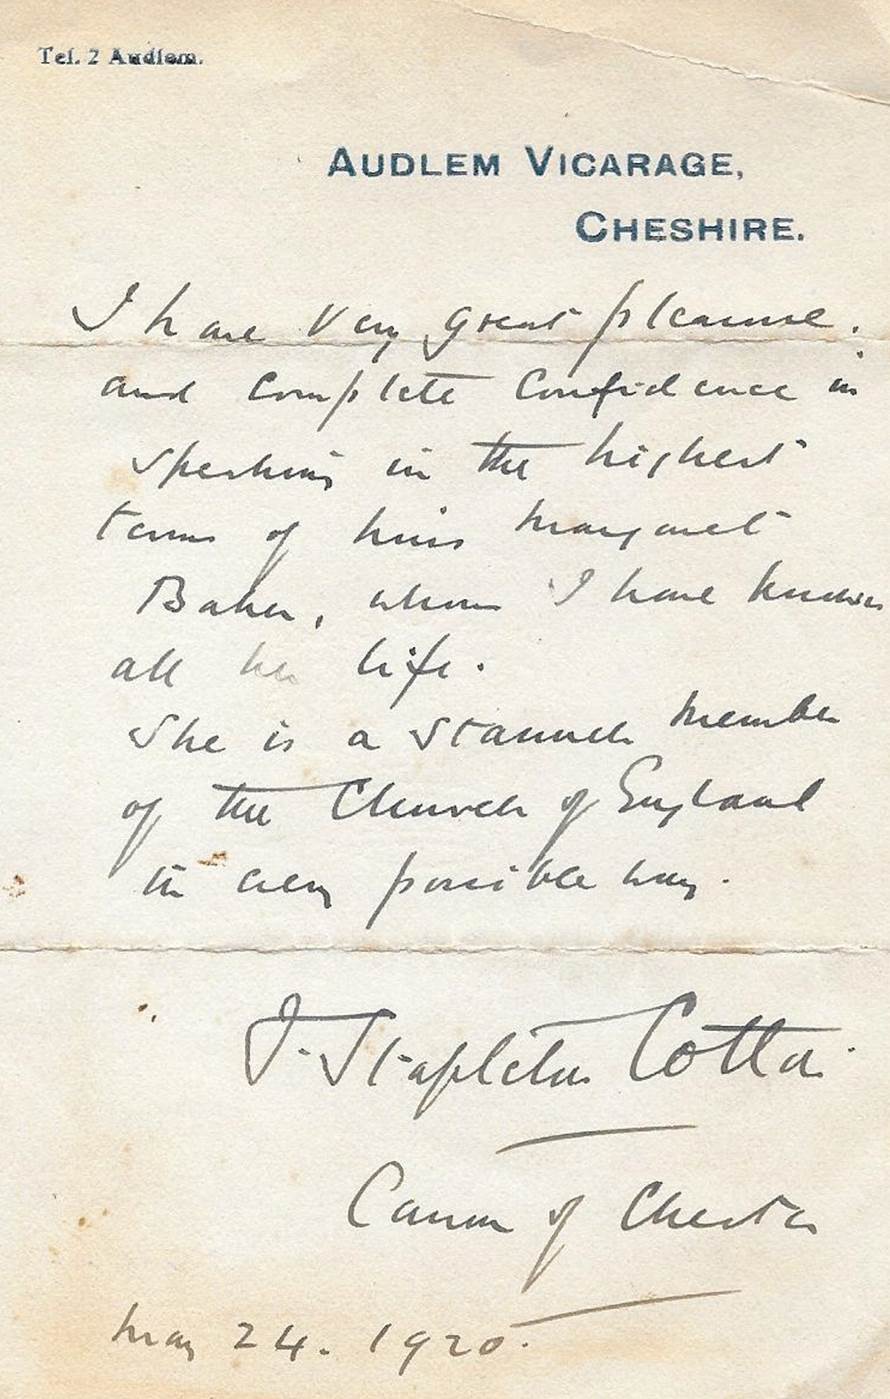 Tel. 2 Audlem.
AUDLEM VICARAGE,
CHESHIRE.
I have very great pleasure.
and complete confidence in
speaking in the highest
terms of Miss Margaret
Baker, whom I have known
all her life.
She is a staunch member
of the Church of England
in every possible way.
J. Stapleton Cotton.
Canon of Chester
May 24. 1920.